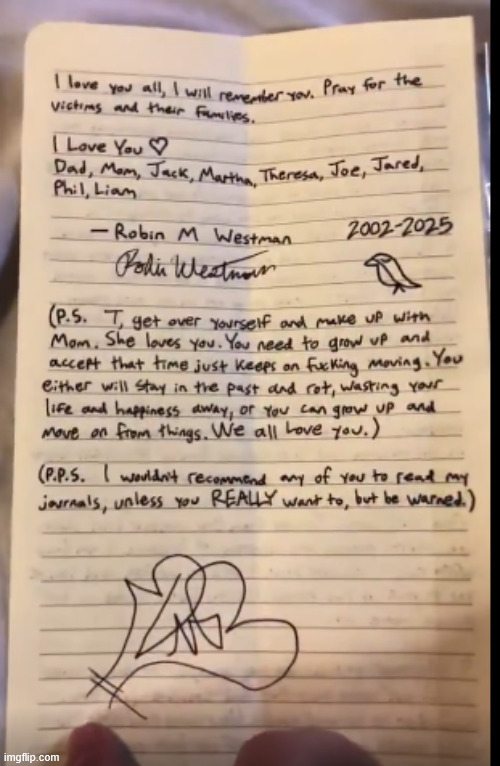 I love you all, I will remember you. Pray for the
victims and their families.
I Love You ♡
Dad, Mom, Jack, Martha, Theresa, Joe, Jared,
Phil, Liam
— Robin M Westman 2002-2025
Robin Westman
(P.S. T, get over yourself and make up with
Mom. She loves you. You need to grow up and
accept that time just keeps on fucking moving. You
either will stay in the past and rot, wasting your
life and happiness away, or you can grow up and
move on from things. We all love you.)
(P.P.S. I wouldn't recommend any of you to read my
journals, unless you REALLY want to, but be warned.)
imgflip.com